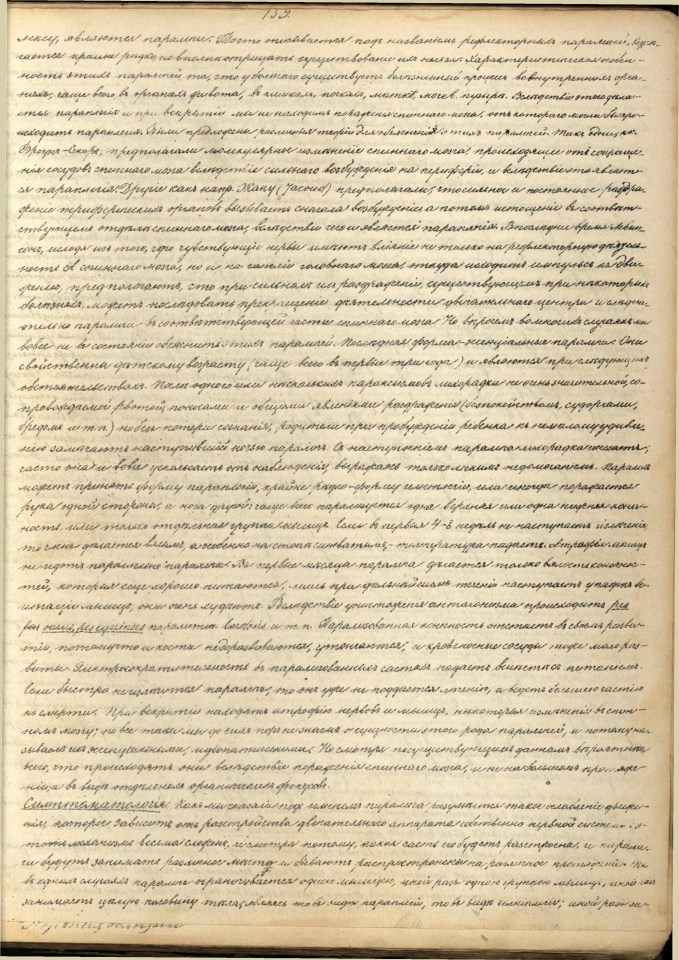 159.
лексу, являются параличи. То что описывается подъ названіемъ рефлекторныхъ параличей, встрѣ-
чается крайне рѣдко, но вполнѣ отрицать существованіе ихъ нельзя. Характеристическая особен-
ность этихъ параличей та, что у больного существуетъ болѣзненный процессъ во внутреннихъ орга-
нахъ, чаще всего въ органахъ живота, въ кишкахъ, почкахъ, маткѣ, мочев. пузырѣ. Вслѣдствіе этого явля-
ется параплегія и при вскрытіи мы не находимъ поврежденія спинного мозга, отъ котораго могла бы про-
исходить параплегія. Были предложены различныя теоріи для объясненія этихъ параличей. Такъ одни, какъ
Броунъ-Секаръ, предполагали молекулярное измѣненіе спинного мозга, происходящее отъ сокраще-
нія сосудовъ спинного мозга вслѣдствіе сильнаго возбужденія на периферіи, и вслѣдствіе этого являет-
ся параплегія. Другіе какъ напр. Жаку (Jacoud) предполагали, что сильное и постоянное раздра-
женіе периферическихъ органовъ вызываетъ сначала возбужденіе, а потомъ истощеніе въ соотвѣт-
ствующемъ отдѣлѣ спинного мозга, вслѣдствіе чего и является параплегія. Въ послѣднее время Леви-
сонъ, исходя изъ того, что чувствующіе нервы имѣютъ вліяніе не только на рефлекторную дѣятель-
ность спинного мозга, но и на головного мозга, откуда исходитъ импульсъ къ дви-
женію, предполагаетъ, что при сильномъ ихъ раздраженіи, существующемъ при нѣкоторыхъ
болѣзняхъ, можетъ послѣдовать прекращеніе дѣятельности двигательнаго центра и слѣдова-
тельно параличъ въ соотвѣтствующей части спинного мозга. Но впрочемъ во многихъ случаяхъ мы
вовсе не въ состояніи объяснить этихъ параличей. Послѣдняя форма - эссенціальные параличи. Они
свойственны дѣтскому возрасту (чаще всего въ первые три года) и являются при слѣдующихъ
обстоятельствахъ. Послѣ одного или нѣсколькихъ пароксизмовъ лихорадки не очень значительной, со-
провождаемой рвотой, поносами и общими явленіями раздраженія (безпокойствомъ, судорогами,
бредомъ и т. п.) но безъ потери сознанія, родители при пробужденіи ребенка къ немалому удивле-
нію замѣчаютъ наступившій ночью параличъ. Съ наступленіемъ паралича лихорадка исчезаетъ;
часто она и вовсе ускользаетъ отъ наблюденія, выражаясь только легкимъ недомоганіемъ. Параличъ
можетъ принять форму параплегіи, крайне рѣдко - форму гемиплегіи, или иногда поражается
рука одной стороны, а нога другой: чаще всего парализуется одна верхняя или одна нижняя конеч-
ность или только отдѣльная группа мышцъ. Если въ первыя 4-8 недѣль не наступаетъ излеченія
то члены дѣлаются вялыми, а особенно на стопѣ синеватыми, - температура падаетъ. Атрофія мышцъ
не идетъ параллельно параличу. Въ первые мѣсяцы паралича дѣлается только вялость конечнос-
тей, которыя еще хорошо питаются, лишь при дальнѣйшемъ теченіи наступаетъ упадокъ пи-
танія мышцъ, они очень худѣютъ. Вслѣдствіе уничтоженія антагонизма происходитъ pes
varus, pes equinus паралитич. и т. п. Парализованная конечность отстаетъ въ своемъ разви-
тіи, потому что и кости недоразвиваются, утончаются, и кровеносные сосуды тоже мало раз-
виты. Электросократительность въ парализованныхъ частяхъ падаетъ вмѣстѣ съ питаніемъ.
Если быстро не излечится параличъ, то онъ уже не поддается леченію, а ведетъ большею частію
къ смерти. При вскрытіи находятъ атрофію нервовъ и мышцъ, нѣкоторыя измѣненія въ спин-
номъ мозгу; но все таки мы до сихъ поръ не знаемъ о сущности этого рода параличей, и потому на-
зываемъ ихъ эссенціальными, идіопатическими. Но смотря по существующимъ даннымъ вѣроятнѣе
всего, что происходятъ они вслѣдствіе пораженія спинного мозга, и не на большомъ протяже-
ніи а въ видѣ отдѣльныхъ ограниченныхъ фокусовъ.
Симптоматологія. Какъ мы сказали подъ именемъ паралича разумѣется такое ослабленіе движе-
нія, которое зависитъ отъ разстройства двигательнаго аппарата собственно нервной системы. Э-
тотъ механизмъ весьма сложенъ, и смотря потому, какая часть его будетъ разстроена, и парали-
чи будутъ занимать различное мѣсто и бываютъ распространены на различное протяженіе. Но
въ однихъ случаяхъ параличъ ограничивается одною мышцею, иной разъ одною группою мышцъ, иной разъ
занимаетъ цѣлую половину тѣла, являясь то въ видѣ параплегіи, то въ видѣ гемиплегіи; иной разъ за-